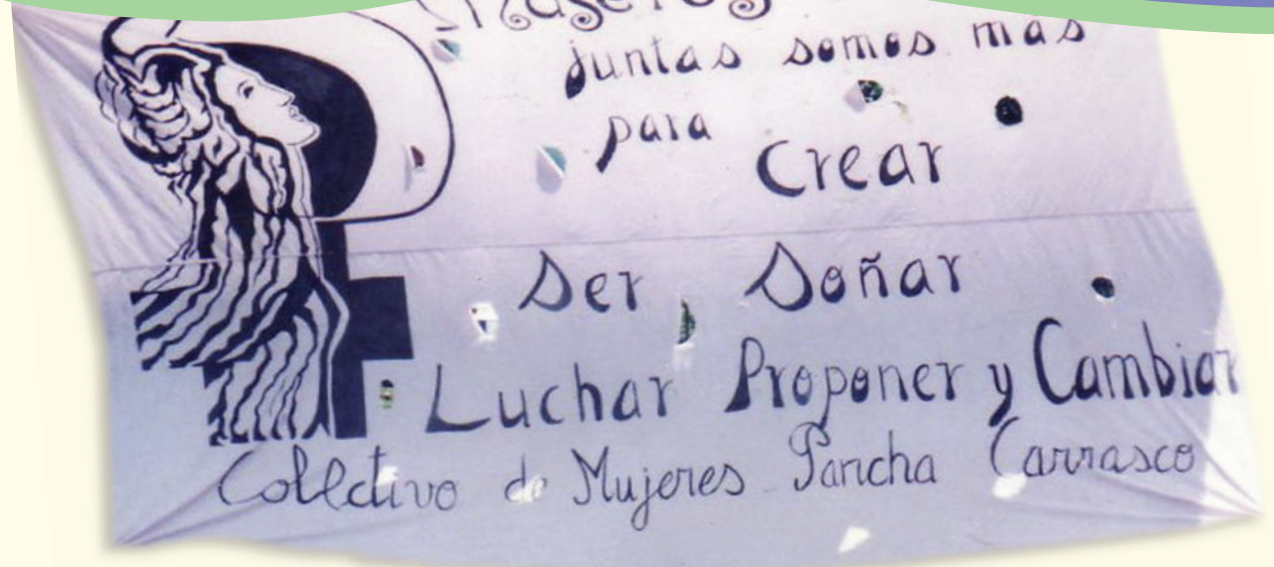 juntas somos más
para Crear
Ser Soñar
Luchar Proponer y Cambiar
Colectivo de Mujeres Pancha Carrasco